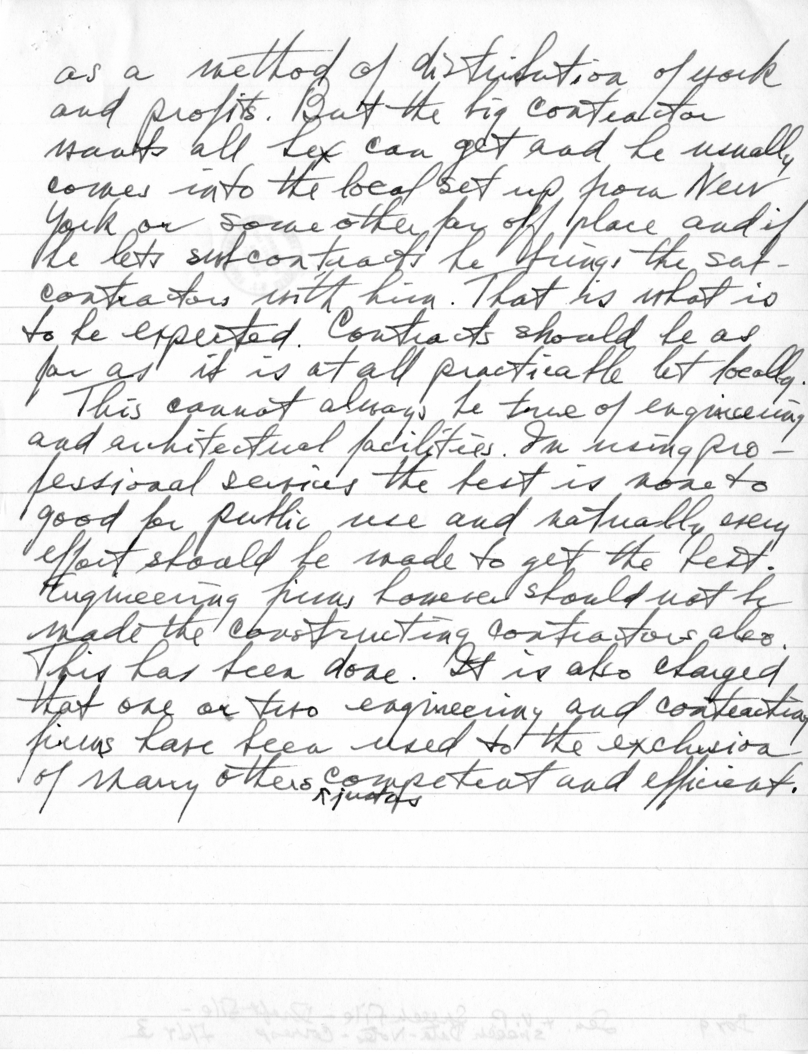 as a method of distribution of work
and profits. But the big contractor
wants all hex can get and he usually
comes into the local set up from New
York or some other far off place and if
he lets subcontracts he brings the sub-
contractors with him. That is what is
to be expected. Contracts should be as
far as it is at all practicable let locally.
This cannot always be true of engineering
and architectual facilities. In using pro-
fessional services the best is none to
good for public use and natually every
effort should be made to get the best.
Engineering firms however should not be
made the constructing contractors also.
This has been done. It is also charged
that one or two engineering and contracting
firms have been used to the exclusion
of many others competent and efficient.
just as